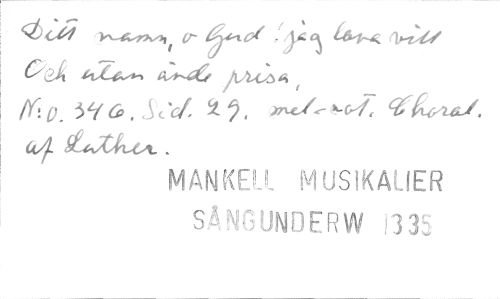 Ditt namn, o Gud! jag lova vill
Och utan ände prisa,
N:o. 346. Sid. 29. mel-not. Choral.
af Luther.
MANKELL MUSIKALIER
SÅNGUNDERW 1335